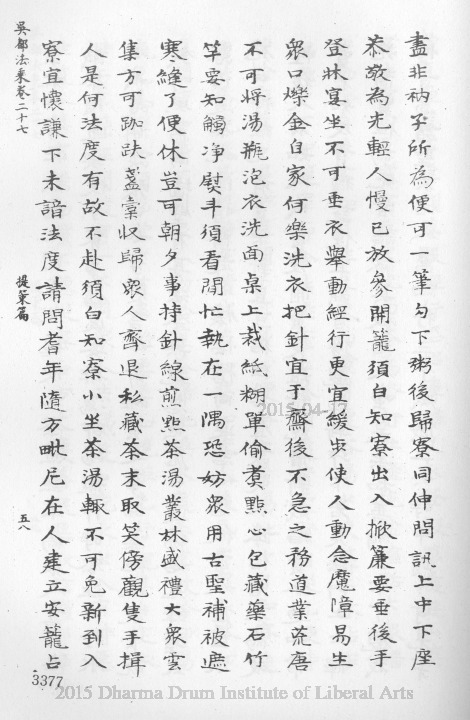 盡非衲子所為便可一筆勾下粥後歸寮同伸問訊上中下座
恭敬為先輕人慢已放參開籠須白知寮出入掀簾要垂後手
登牀宴坐不可垂衣舉動經行更宜緩步使人動念魔障易生
眾口爍金自家何樂洗衣把針宜于齋後不急之務道業荒唐
不可將湯瓶泡衣洗面桌上裁紙糊單偷煑點心包藏藥石竹
竿要知觸净熨斗須看閒忙執在一隅恐妨眾用古聖補被遮
寒縫了便休豈可朝夕事持針線煎點茶湯叢林盛禮大眾雲
集方可跏趺盞橐収歸眾人齊退私藏茶末取笑傍觀隻手揖
人是何法度有故不赴須白知寮小坐茶湯輒不可免新到入
寮宜懷謙下未諳法度請問耆年隨方毗尼在人建立安籠占
吳都法乘卷二十七
提策篇
五八
3377
2015-04-17
2015 Dharma Drum Institute of Liberal Arts